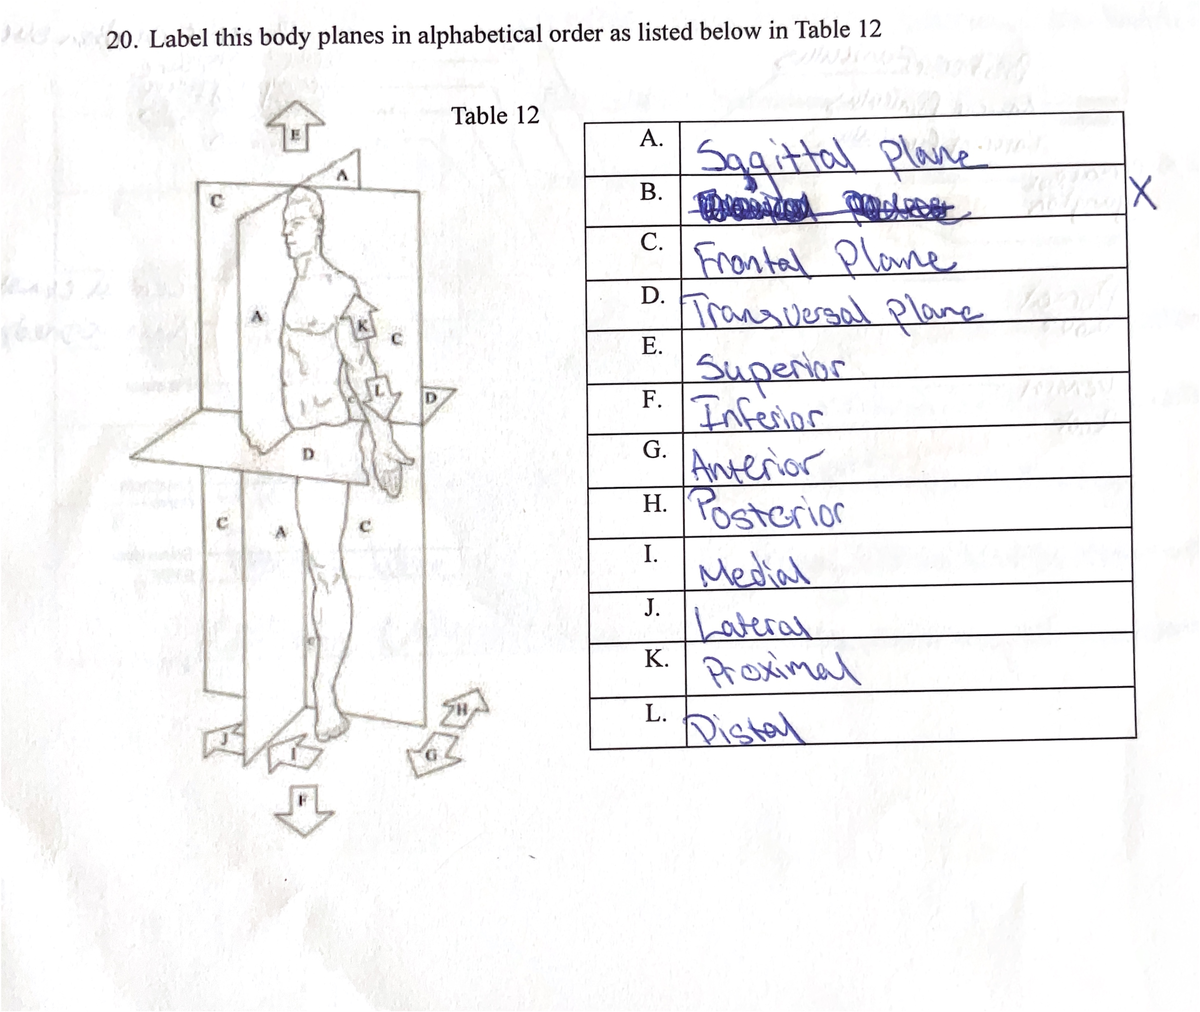 20. Label this body planes in alphabetical order as listed below in Table 12
Table 12
E
A
C
A
K
C
L
D
D
C
A
C
H
J
I
G
F
A. Saggittal Plane
B.
X
C. Frontal Plane
D. Transversal Plane
E. Superior
F. Inferior
G. Anterior
H. Posterior
I. Medial
J. Lateral
K. Proximal
L. Distal